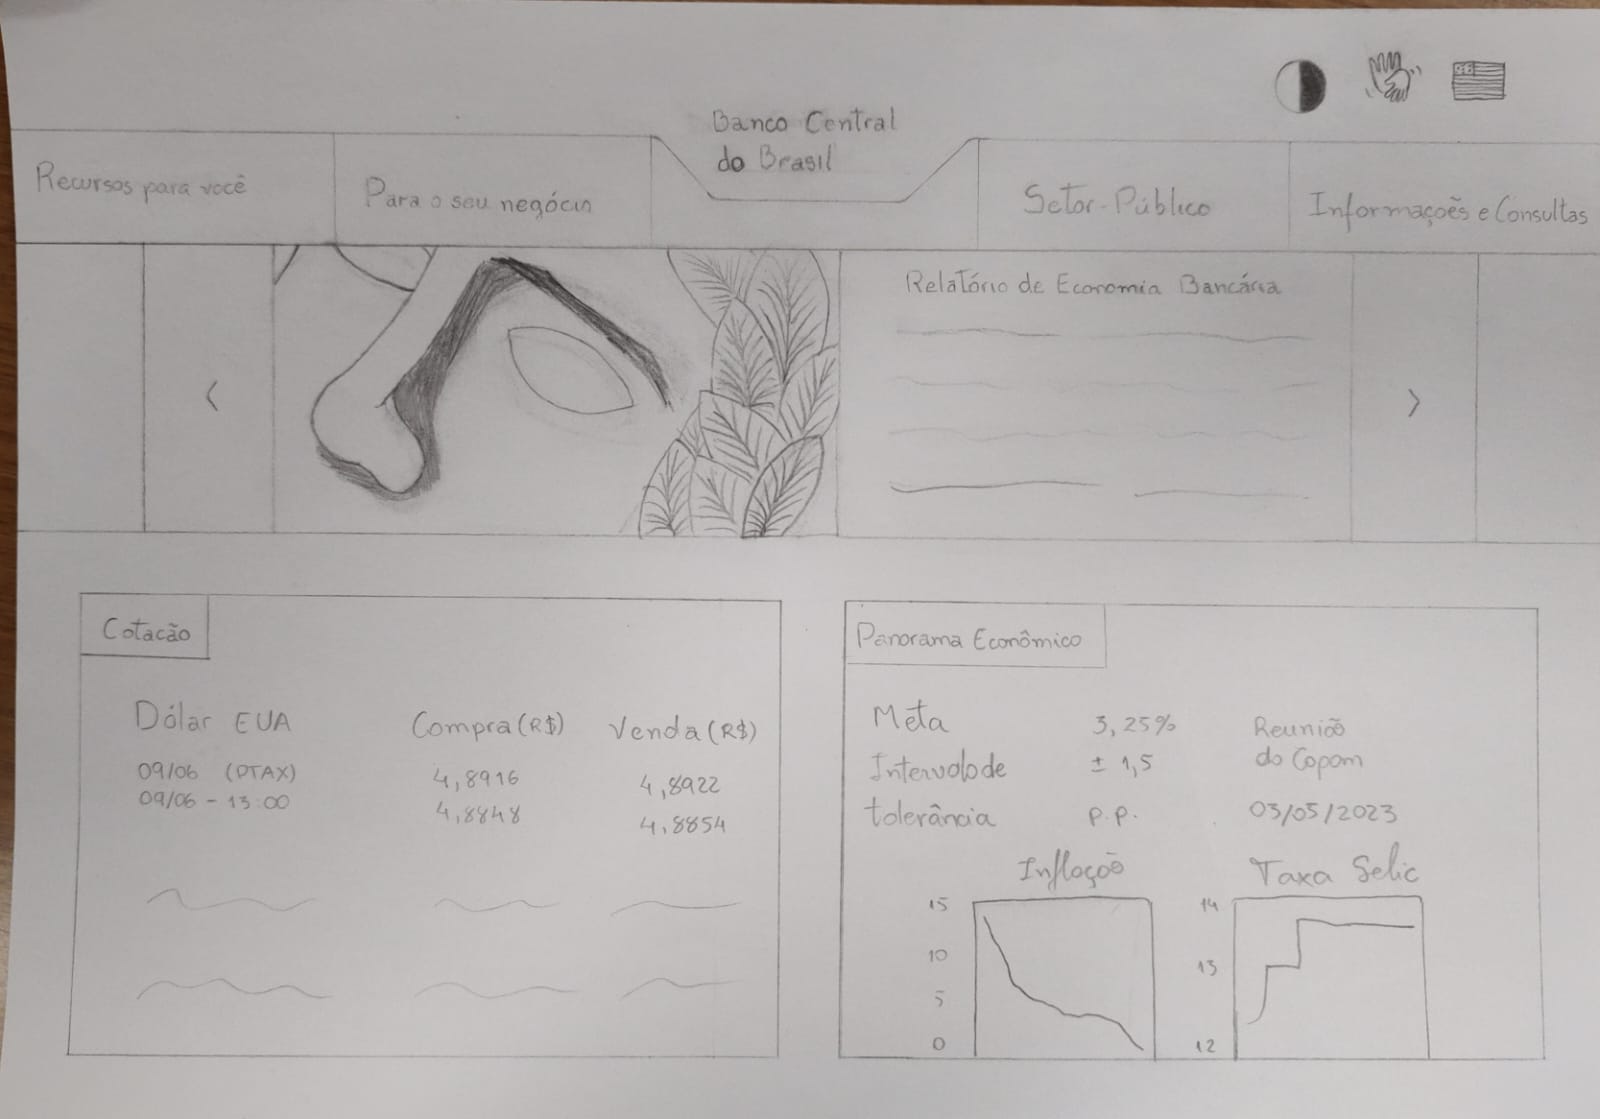 Banco Central
do Brasil
Recursos para você
Para o seu negócio
Setor-Público
Informações e Consultas
<
Relatório de Economia Bancária
>
Cotacão
Dólar EUA Compra (R$) Venda (R$)
09/06 (PTAX) 4,8916 4,8922
09/06 - 13:00 4,8848 4,8854
Panorama Econômico
Meta 3,25% Reunião
Intervalo de ± 1,5 do Copom
tolerância p.p. 03/05/2023
Inflação
15
10
5
0
Taxa Selic
14
13
12